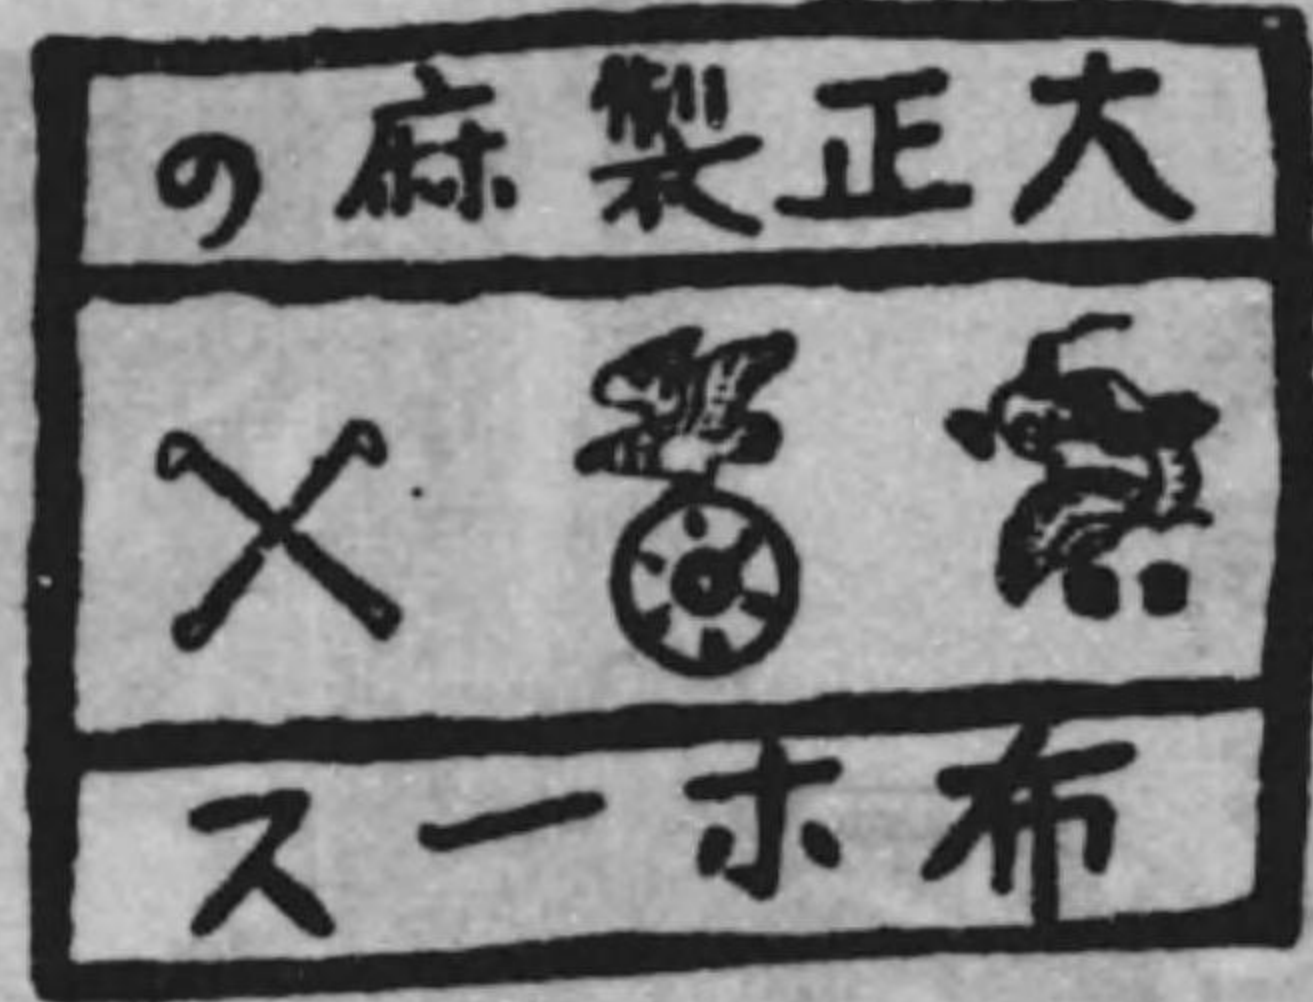 大正製麻の
布ホース